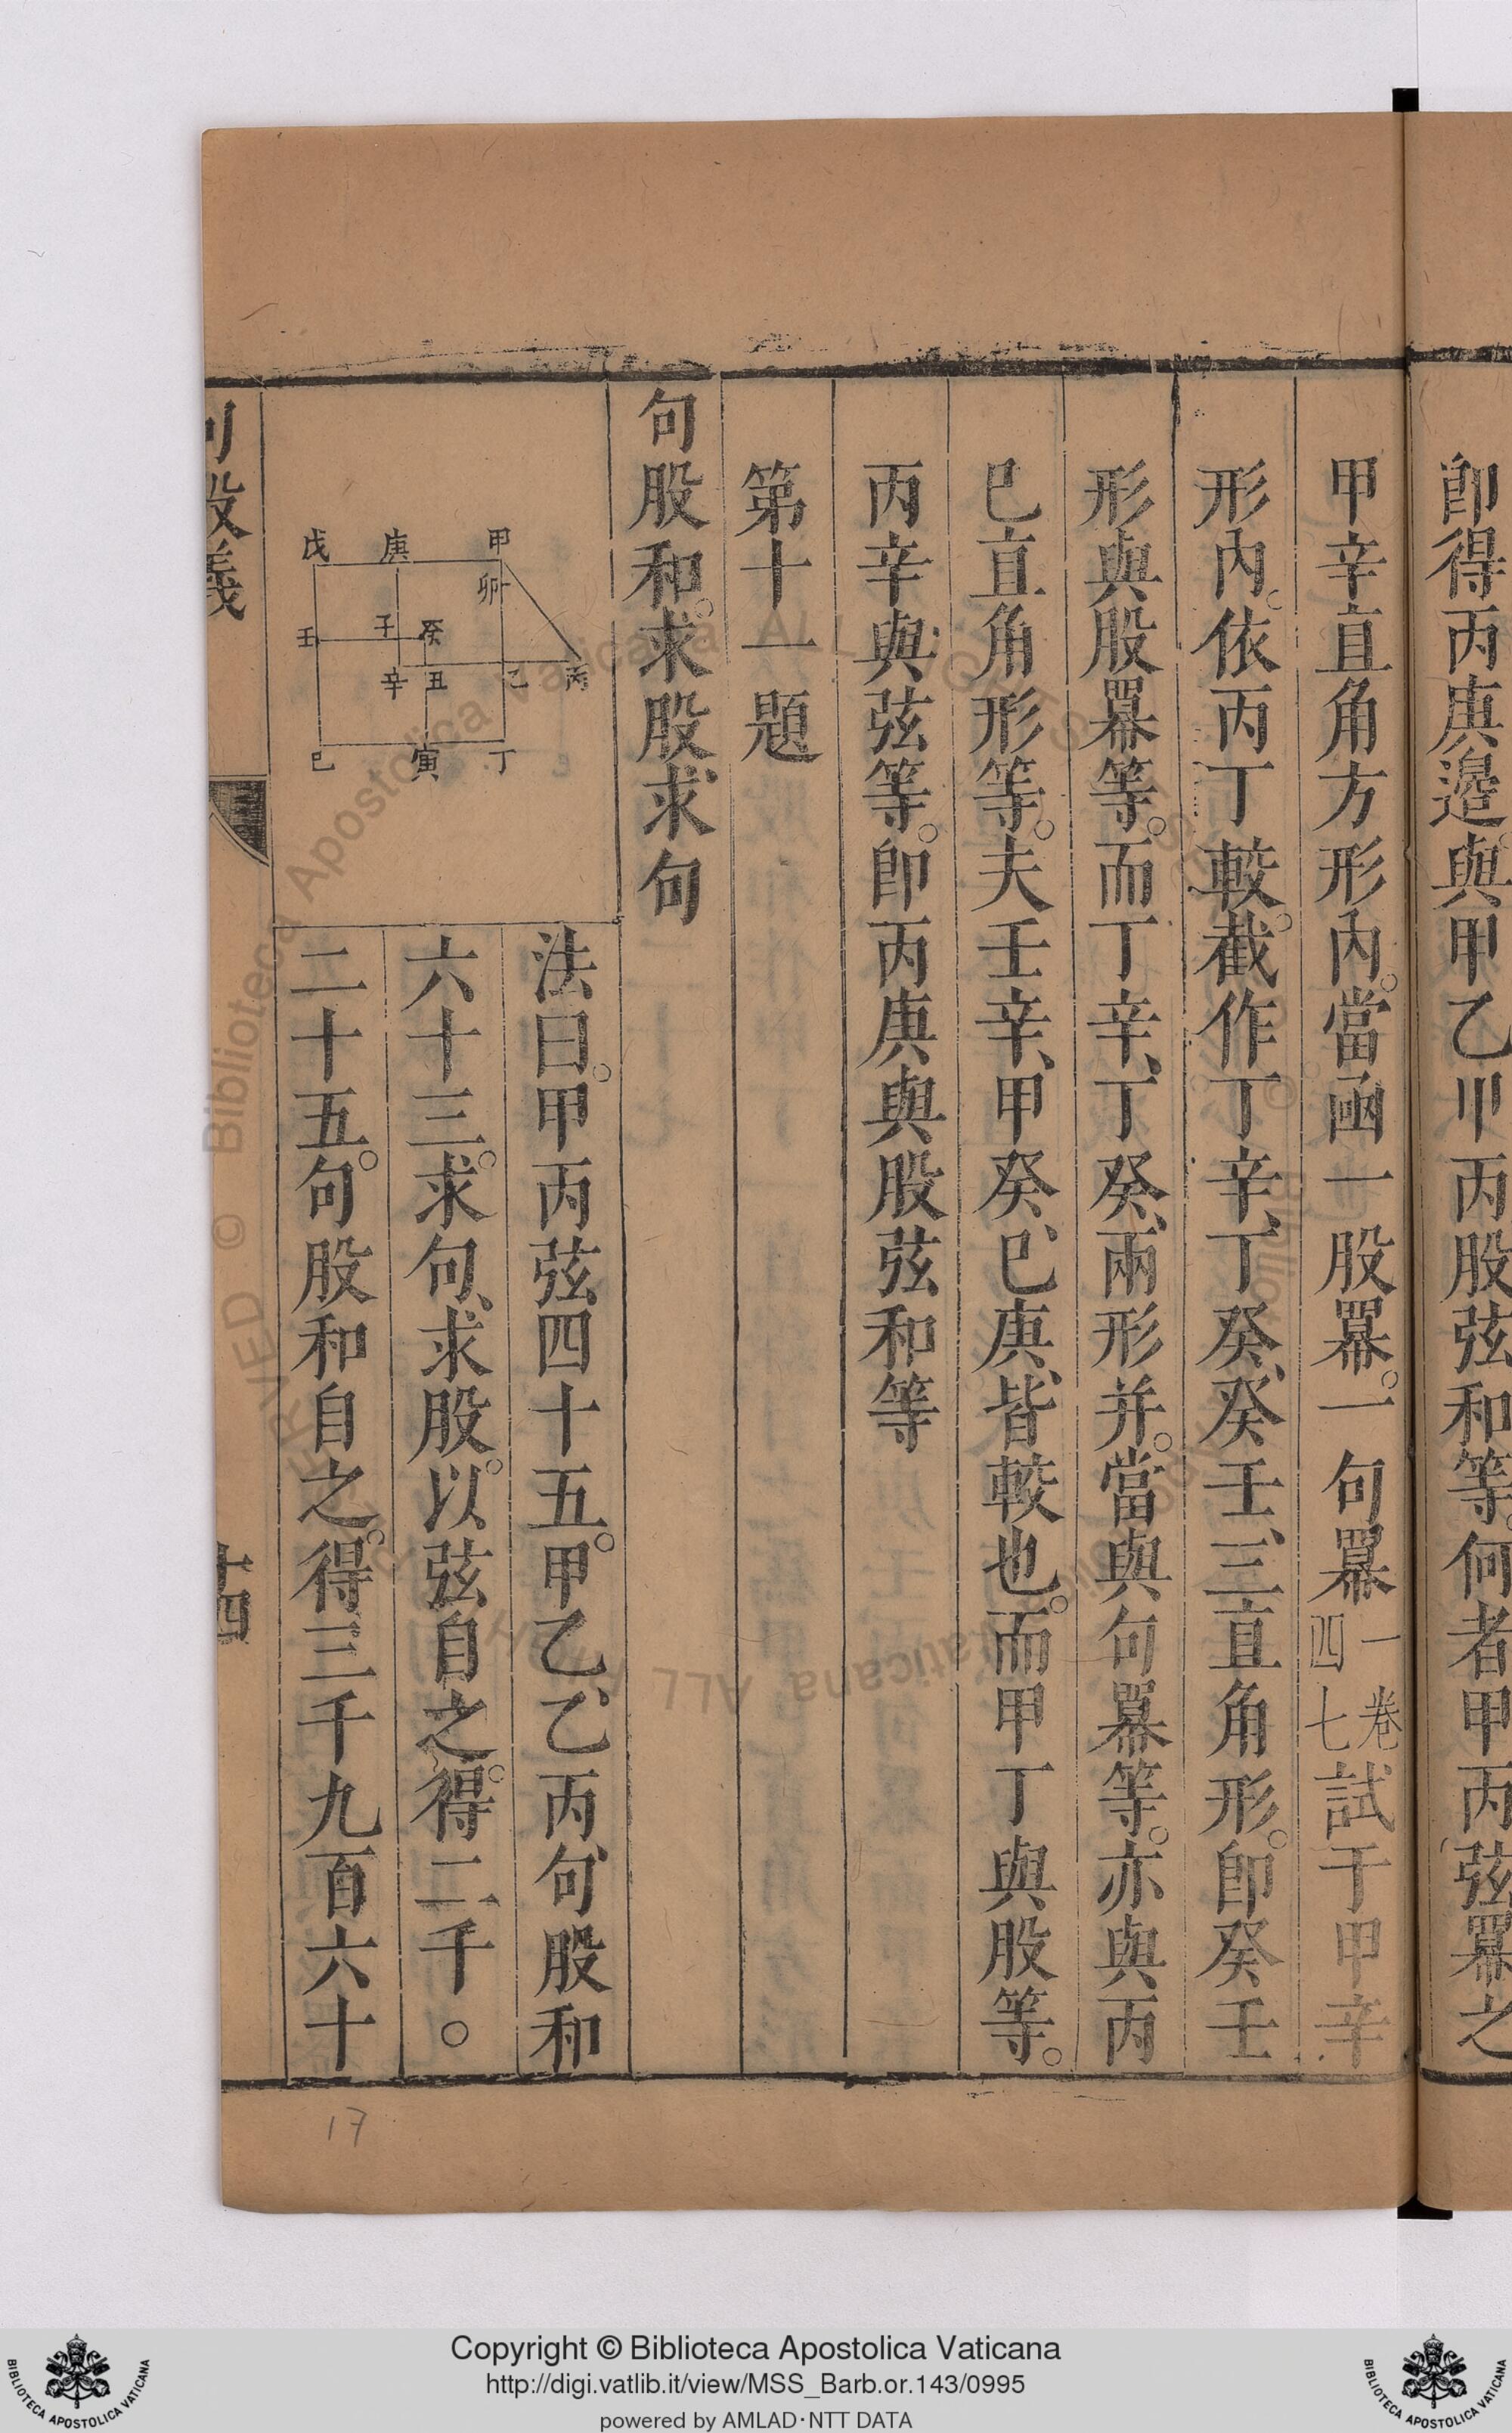 即得丙庚邊。與甲乙、乙丙股弦和等。何者甲丙弦羃之
甲辛直角方形內。當函一股羃。一句羃一卷四七試于甲辛
形內。依丙丁較。截作丁辛、丁癸、癸壬、三直角形。即癸壬
形與股羃等。而丁辛、丁癸、兩形并。當與句羃等。亦與丙
巳直角形等。夫壬辛、甲癸、巳庚、皆較也。而甲丁與股等。
丙辛與弦等。即丙庚與股弦和等
第十一題
句股和。求股求句
甲
庚
戊
卯
癸
子
壬
丙
乙
丑
辛
丁
寅
巳
法曰。甲丙弦四十五。甲乙、乙丙、句股和
六十三。求句、求股。以弦自之。得二千○
二十五。句股和自之。得三千九百六十
句股義
十四
17
Copyright © Biblioteca Apostolica Vaticana
http://digi.vatlib.it/view/MSS_Barb.or.143/0995
powered by AMLAD·NTT DATA
BIBLIOTECA APOSTOLICA VATICANA
BIBLIOTECA APOSTOLICA VATICANA